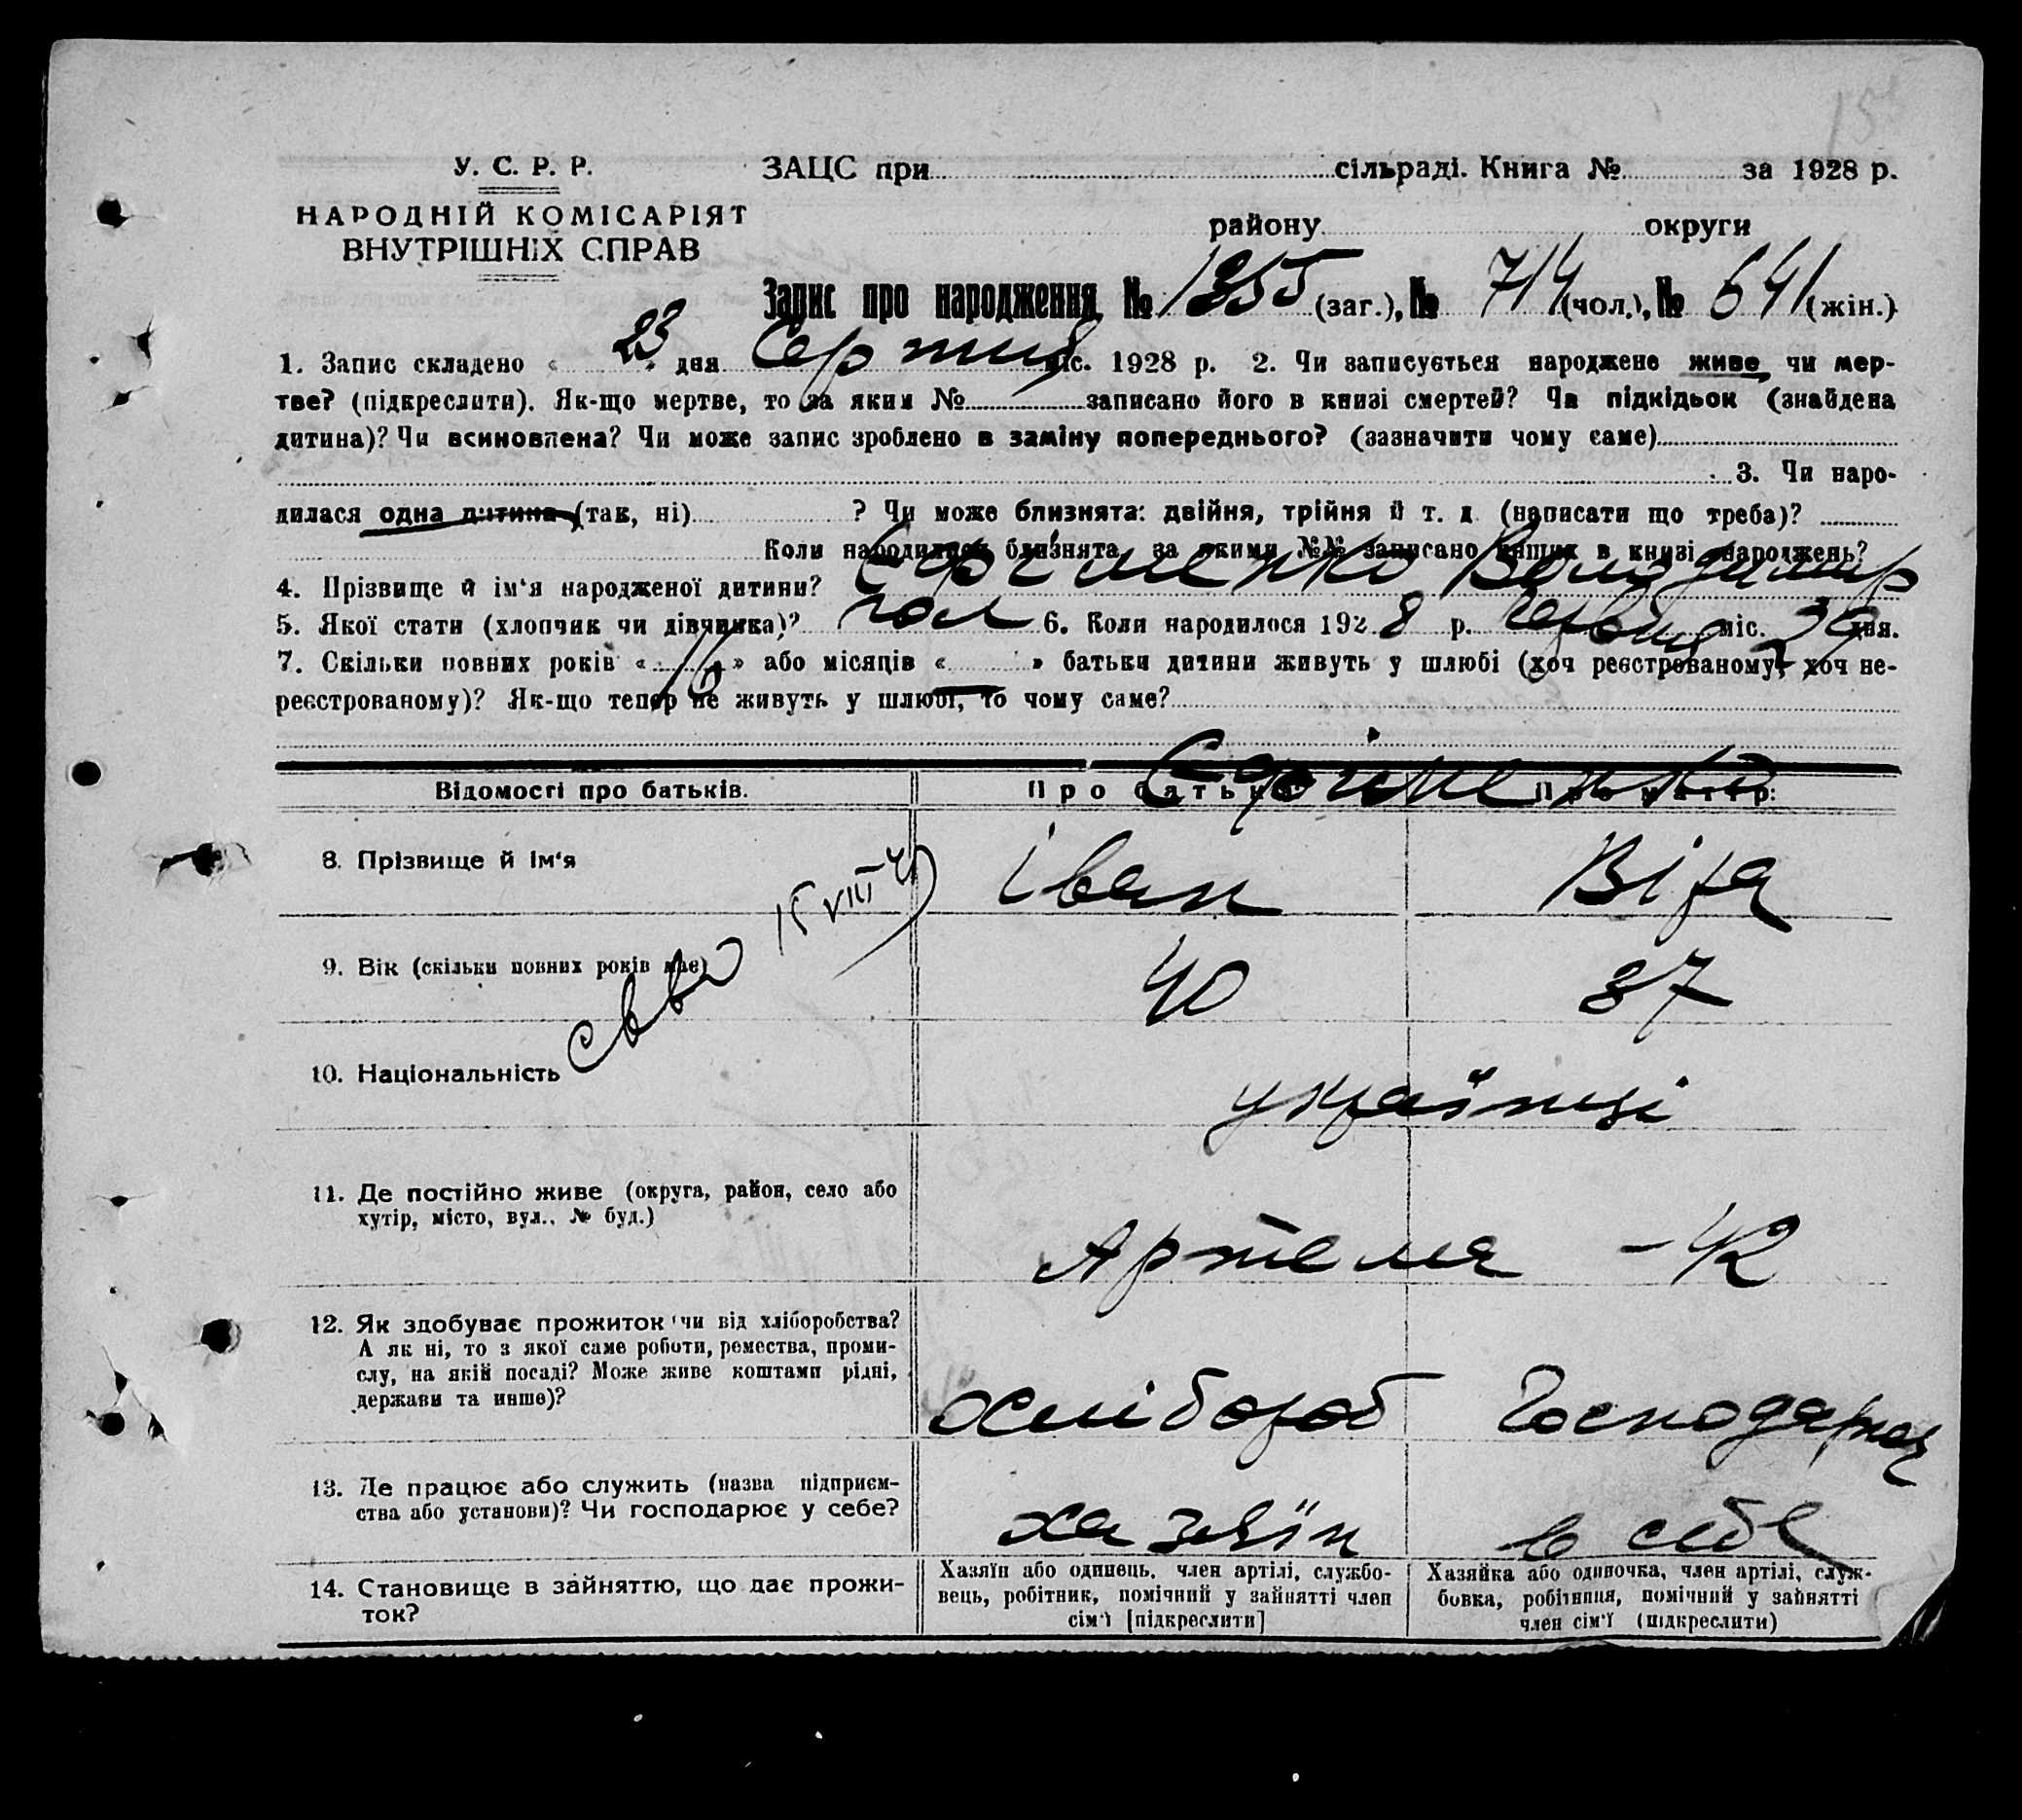 15
У. С. Р. Р.
НАРОДНІЙ КОМІСАРІЯТ
ВНУТРІШНІХ СПРАВ
ЗАЦС при сільраді. Книга № за 1928 р.
району округи
Запис про народження № 1355 (заг.), № 714 (чол.), № 641 (жін.)
1. Запис складено « 23 » дня Серпня міс. 1928 р. 2. Чи записується народжене живе чи мер-
тве? (підкреслити). Як-що мертве, то за яким № записано його в книзі смертей? Чи підкідьок (знайдена
дитина)? Чи всиновлена? Чи може запис зроблено в заміну попереднього? (зазначити чому саме)
3. Чи наро-
дилася одна дитина (так, ні) ? Чи може близнята: двійня, трійня й т. д. (написати що треба)?
Коли народилися близнята, за якими №№ записано инших в книзі народжень?
4. Прізвище й ім'я народженої дитини? Єфіменко Володимир
5. Якої стати (хлопчик чи дівчинка)? чол 6. Коли народилося 1928 р. міс. дня.
7. Скільки повних років « 16 » або місяців « » батьки дитини живуть у шлюбі (хоч реєстрованому, хоч не-
реєстрованому)? Як-що тепер не живуть у шлюбі, то чому саме?
Єфіменко
Відомості про батьків. Про батька: Про матір:
8. Прізвище й ім'я Іван Віра
св-во 15 VIII
9. Вік (скільки повних років має) 40 37
10. Національність українці
11. Де постійно живе (округа, район, село або
хутір, місто, вул., № буд.) Артема - 42
12. Як здобуває прожиток чи від хліборобства?
А як ні, то з якої саме роботи, ремества, проми-
слу, на якій посаді? Може живе коштами рідні,
держави та инше)? хлібороб Господарка
13. Де працює або служить (назва підприєм-
ства або установи)? Чи господарює у себе? хазяїн в себе
14. Становище в зайняттю, що дає прожи-
ток?
Хазяїн або одинець, член артілі, службо-
вець, робітник, помічний у зайнятті член
сім'ї [підкреслити]
Хазяйка або одиночка, член артілі, служ-
бовка, робітниця, помічний у зайнятті
член сім'ї (підкреслити)